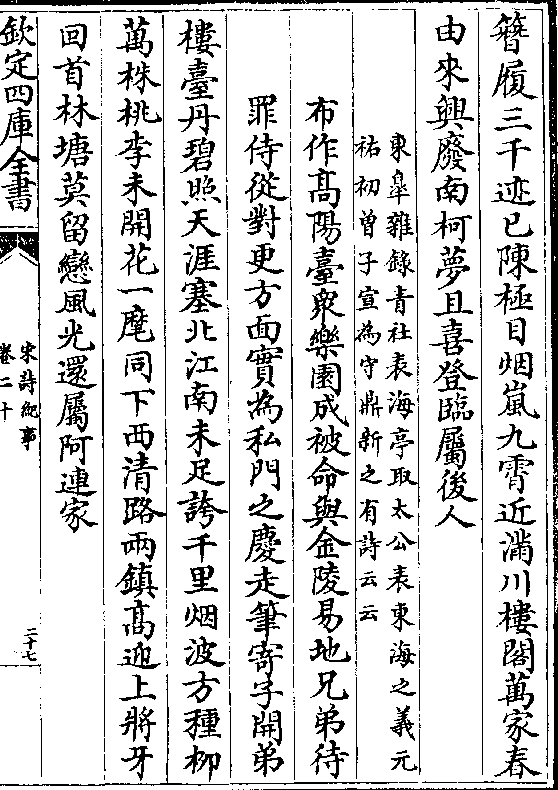 簪履三千迹已陳極目烟嵐九霄近滿川樓閣萬家春
由來興廢南柯夢且喜登臨屬後人
東臯雜錄青社表海亭取太公表東海之義元
祐初曾子宣為守鼎新之有詩云云
布作髙陽臺衆樂園成被命與金陵易地兄弟待
罪侍從對更方面實為私門之慶走筆寄子開弟
樓臺丹碧照天涯塞北江南未足誇千里烟波方種栁
萬株桃李未開花一麾同下西清路兩鎮髙迎上將牙
回首林塘莫留戀風光還屬阿連家
欽定四庫全書
宋詩紀事
卷二十
二十七